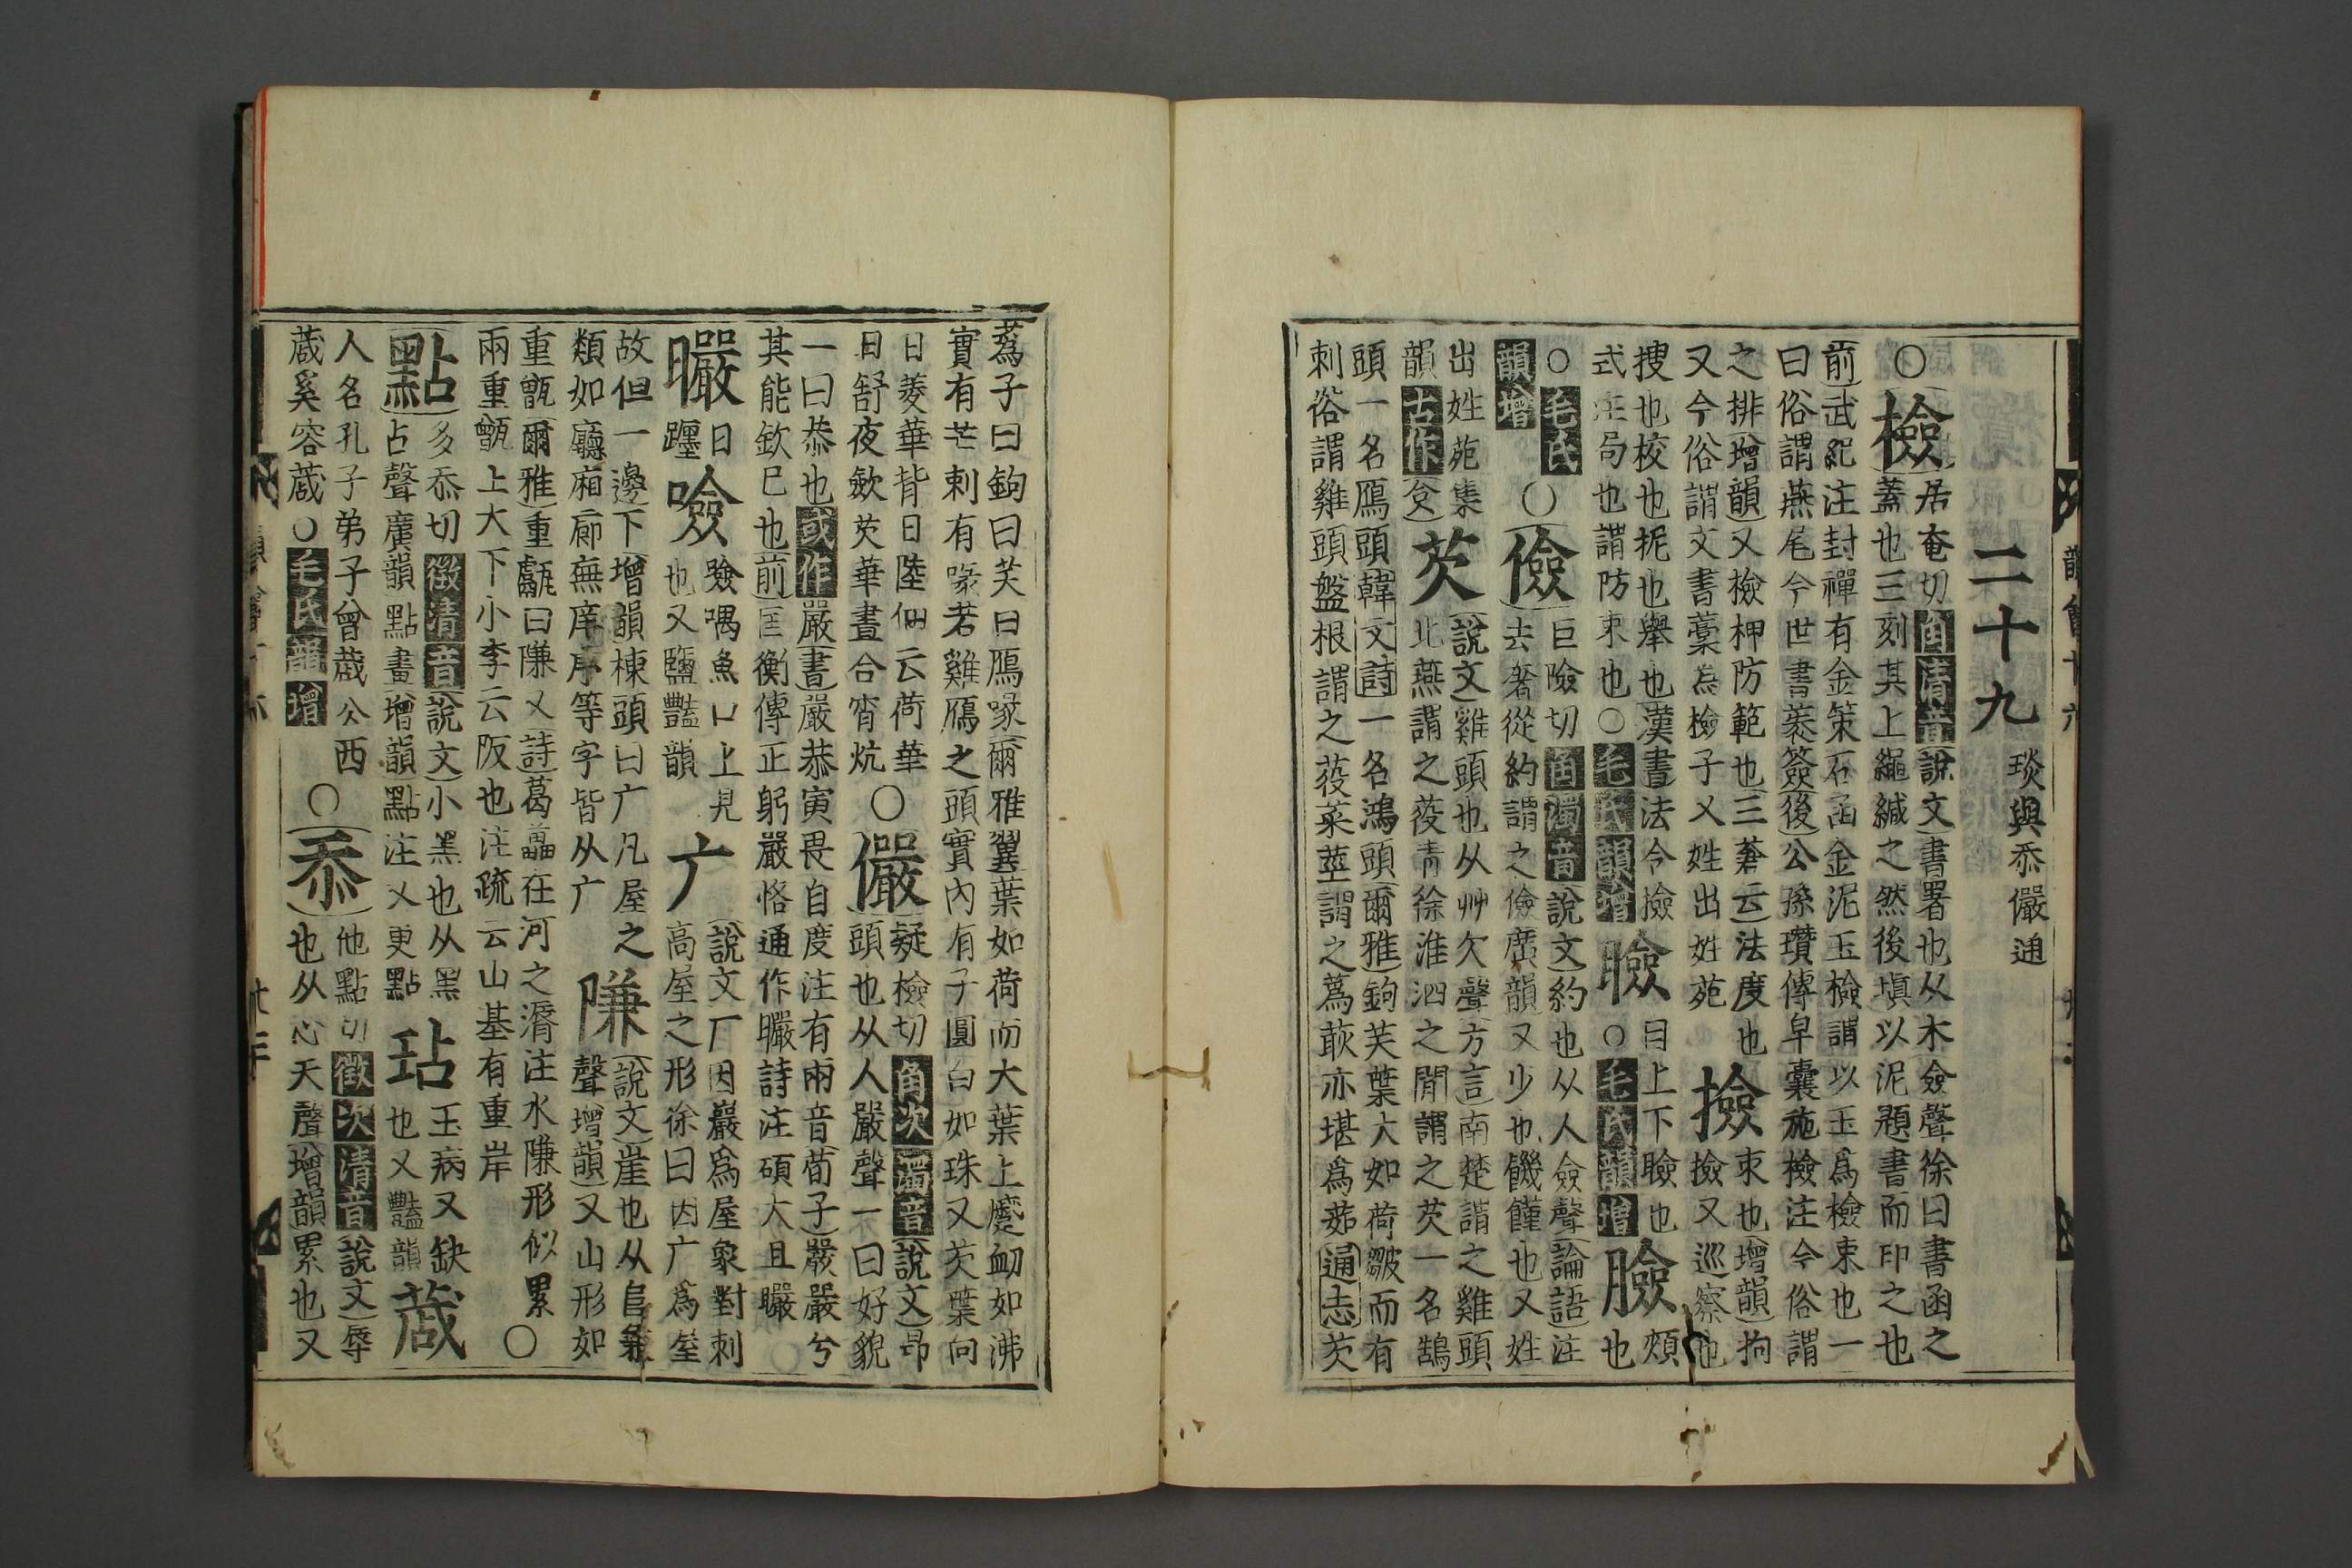 二十九 琰與忝儼通
○檢 居奄切角清音說文書署也从木僉聲徐曰書函之
蓋也三刻其上繩緘之然後塡以泥題書而印之也
前武紀注封禪有金策石函金泥玉檢謂以玉爲檢束也一
曰俗謂燕尾今世書簽後公孫瓚傳皁囊施檢注今俗謂
之排增韻又檢柙防範也三蒼云法度也
又今俗謂文書藁爲檢子又姓出姓苑
撿 束也增韻拘
撿又巡察也
搜也校也抳也舉也漢書法令撿
式注局也謂防束也○毛氏韻增
瞼 曰上下瞼也
○毛氏韻增
臉 頰
也
○毛氏
韻增
○儉 巨險切角濁音說文約也从人僉聲論語注
去奢從約謂之儉廣韻又少也饑饉也又姓
出姓苑集
韻古作㑒
芡 說文雞頭也从艸欠聲方言南楚謂之雞頭
北燕謂之䓈青徐淮泗之閒謂之芡一名鵠
頭一名鴈頭韓文詩一名鴻頭爾雅鉤芙葉大如荷皺而有
刺俗謂雞頭盤根謂之䓈菜莖謂之蔿蔌亦堪爲茹通志芡
蔿子曰鉤曰芙曰鴈喙爾雅翼葉如荷而大葉上蹙衂如沸
實有芒刺有喙若雞鴈之頭實內有子圓白如珠又芡葉向
日菱華背日陸佃云荷華
日舒夜斂芡華晝合宵炕
○儼 疑檢切角次濁音說文昂
頭也从人嚴聲一曰好貌
一曰恭也或作嚴書嚴恭寅畏自度注有兩音荀子嚴嚴兮
其能欽巳也前匡衡傳正躬嚴恪通作曮詩注碩大且曮
曮 日
躔
噞 噞喁魚口上見
也又鹽豔韻
广 說文厂因巖爲屋象對刺
高屋之形徐曰因广爲屋
故但一邊下增韻棟頭曰广凡屋之
類如廳廂廊廡庠序等字皆从广
隒 說文崖也从𨸏兼
聲增韻又山形如
重甑爾雅重甗曰隒又詩葛藟在河之漘注水隒形似累
兩重甑上大下小李云阪也注疏云山基有重岸
○
點 多忝切徵清音說文小黑也从黑
占聲廣韻點畫增韻點注又更點
玷 玉病又缺
也又豔韻
蒧
人名孔子弟子曾蒧公西
蒧奚容蒧○毛氏韻增
○忝 他點切徵次清音說文辱
也从心天聲增韻累也又